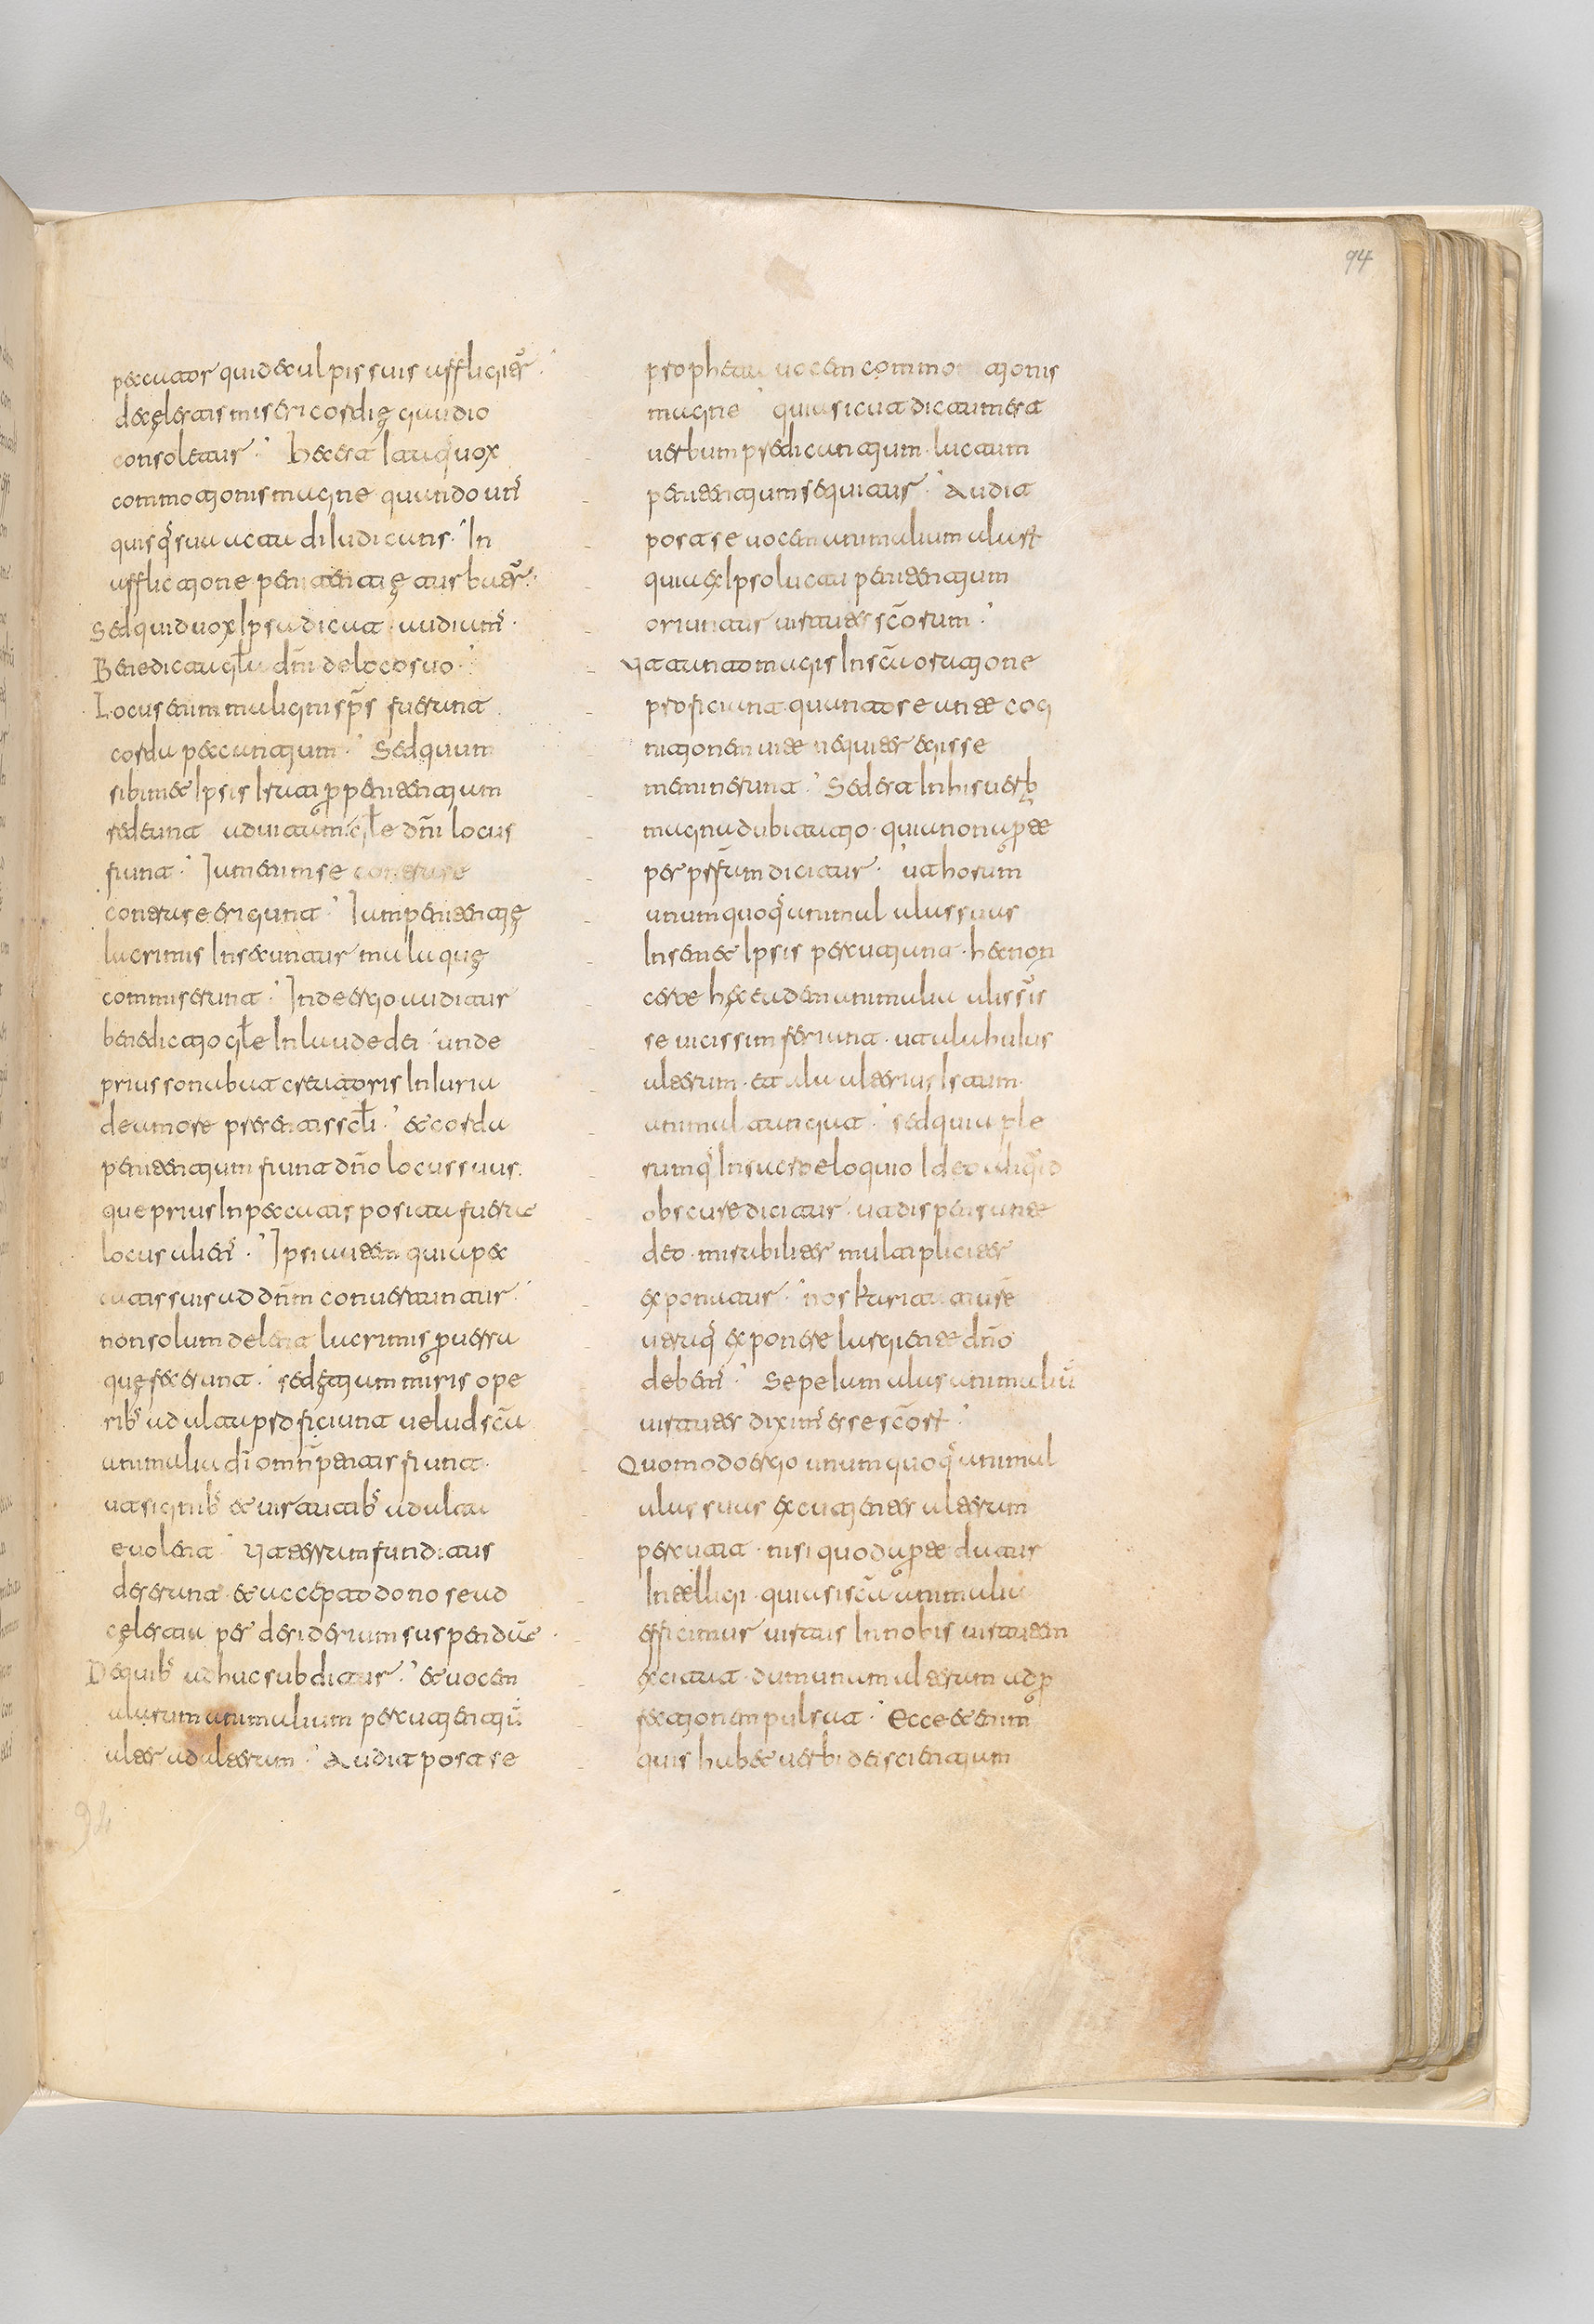 94
peccator quidex culpis suis affligitur.
deceleratis misericordię gaudio
consoletur. Hec est itaque uox
commotionis magne quando unus
quisque sua acta diiudicans. In
afflictione penitentię turbatur.
Sed quid uox ipsa dicat audiamus.
Benedicta gl̅a dn̅i de loco suo.
Locus enim malignis sp̅s fuerunt
corda peccantium. Sed quum
sibimet ipsis irati per penitentiam
redeunt ad uitam gl̅e dn̅i locus
fiunt. Iam enim se
contra se erigunt. Iam penitentię
lacrimis insecuntur mala quę
commiserunt. Inde ergo auditur
benedictio gl̅e in laude dei unde
prius sonabat creatoris iniuria
de amore presentis scl̅i. et corda
penitentium fiunt dn̅o locus suus.
que prius in peccatis posita fuerunt
locus alienus. Ipsi autem qui a pec
catis suis ad dn̅m conuertuntur
non solum delent lacrimis praua
quę fecerunt. sed etiam miris ope
ribus ad alta proficiunt uelud sc̅a
animalia di̅ omnipotentis fiant.
ut signibus et uirtutibus ad alta
euolent. Ut terram funditus
deserant. et accepto dono se ad
cęlestia per desiderium suspendunt.
De quibus adhuc subditur. et uocem
alarum animalium percutientium
alter ad alterum. Audit post se
propheta uocem commo tionis
magne quia sicut dictum est
uerbum predicantium luctum
penitentium sequitur. Audit
post se uocem animalium alarum
quia ex ipso luctu penitentium
oriuntur uirtutes sc̅orum.
Ut tanto magis in sc̅a oratione
proficiant. quanto se ante cog
nitionem uite nequiter egisse
meminerunt. Sed est in his uerbis
magna dubitatio. quia non aperte
per prophetam dicitur. ut horum
unumquodque animal alas suas
in semet ipsis percutiunt. hec non
certe hec eadem animalia alis suis
se uicissim feriunt. ut ala huius
alterum. et ala alterius istum
animal tangat. sed quia ple
rumque in sacro eloquio ideo aliquid
obscure dicitur. ut dispensante
deo mirabiliter multipliciter
exponatur. nos karitati uestre
utrumque exponere largiente dn̅o
debemus. Sepe iam alas animalium
uirtutes diximus esse sc̅orum.
Quomodo ergo unumquodque animal
alas suas excutientes alterum
percutit. nisi quod aperte datur
intelligi. quia si sc̅a animalia
efficimur uirtus in nobis uirtutem
excitat. dum unum alterum ad per
fectionem pulsat. Ecce etenim
quis habet uerbi dei scientiam
94